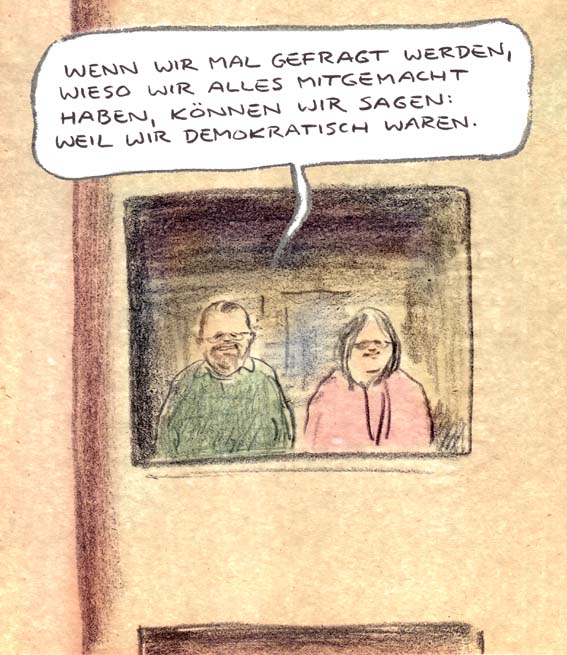 WENN WIR MAL GEFRAGT WERDEN,
WIESO WIR ALLES MITGEMACHT
HABEN, KÖNNEN WIR SAGEN:
WEIL WIR DEMOKRATISCH WAREN.